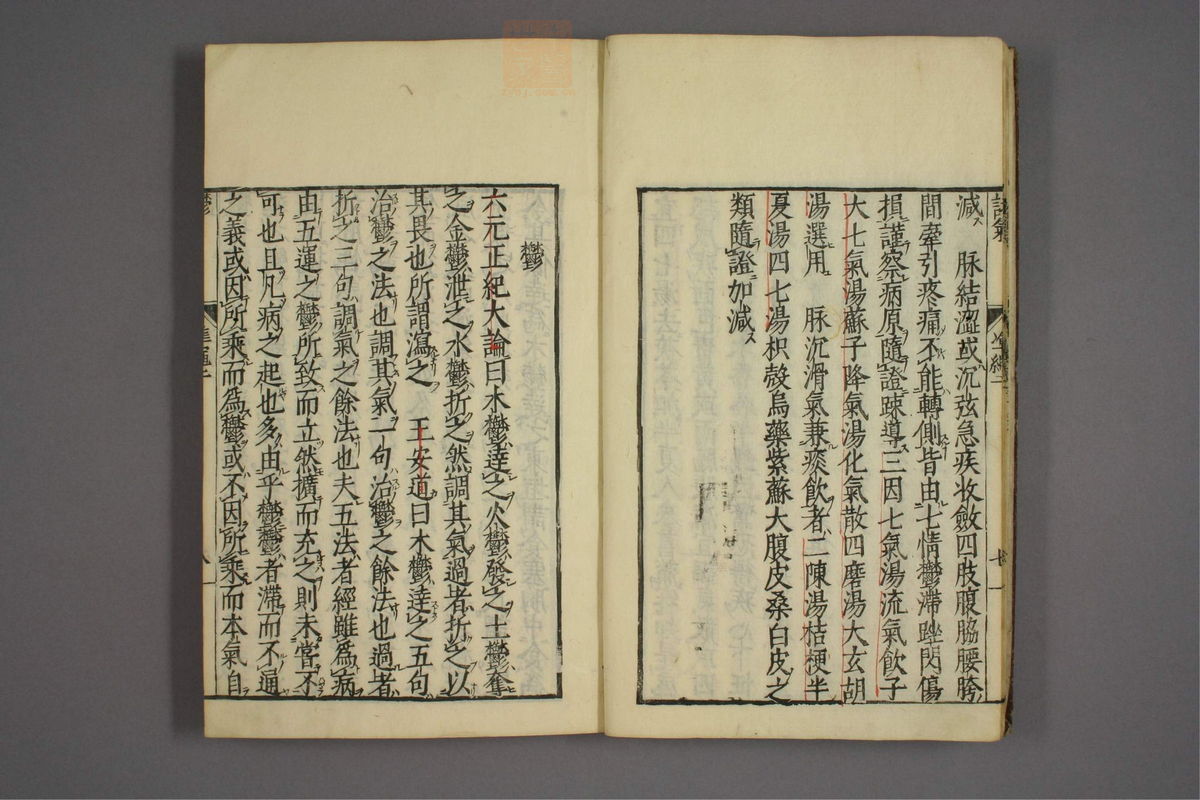 減ス　脉結澀或沉弦急疾妆斂四肢腹脇腰胯
間牽引疼痛不能轉側皆由七情鬱滯跙閃傷
損謹察病原隨證踈導三因七氣湯流氣飲子
大七氣湯蘇子降氣湯化氣散四磨湯大玄胡
湯選用　脉沉滑氣兼痰飲者二陳湯桔梗半
夏湯四七湯枳殻烏藥紫蘇大腹皮桑白皮之
類隨證加減ス
鬱
六元正紀大論曰木鬱達之火鬱發之土鬱奪
之金鬱泄之水鬱折之然調其氣過者折之以
其畏也所謂瀉之　王安道曰木鬱達之五句
治鬱之法也調其氣一句治鬱之餘法也過者
折之三句調氣之餘法也夫五法者經雖爲病
由五運之鬱所致而立然擴而充之則未甞不
可也且凡病之起也多由乎鬱鬱者滯而不通
之義或因所乘而爲鬱或不因所乘而本氣自